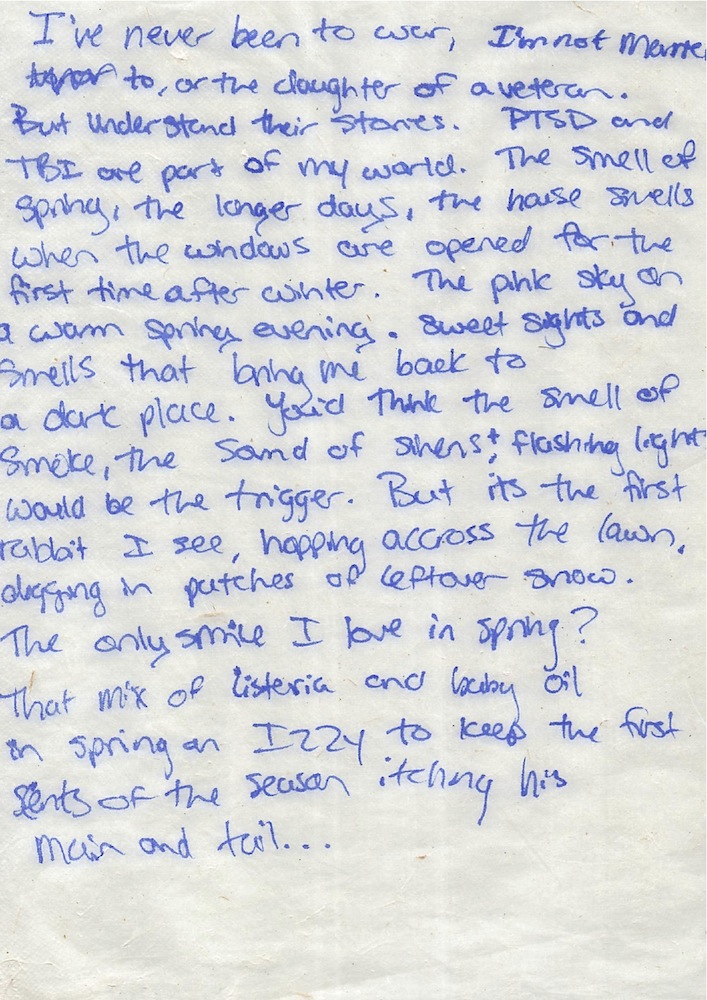 I've never been to war, I'm not Marrie
to, or the daughter of a veteran.
But understand their stories. PTSD and
TBI are part of my world. The smell of
spring, the longer days, the house smells
when the windows are opened for the
first time after winter. The pink sky on
a warm spring evening. Sweet sights and
smells that bring me back to
a dark place. You'd think the smell of
smoke, the sound of sirens & flashing light
would be the trigger. But its the first
rabbit I see, hopping accross the lawn,
digging in patches of leftover snow.
The only smile I love in spring?
That mix of listeria and baby oil
in spring on Izzy to keep the first
of the season itching his
main and tail...